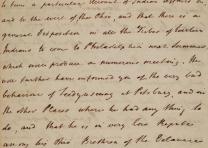 to have a particular Account of Indian Affairs on
and to the west of the Ohio, and that there is a
general Disposition in all the Tribes of Eastern
Indians to come to Philada. next Summer
which will produce a numerous meeting. He
was farther have informed you of the very bad
behaviour of Teedyuscung at Pitsburg, and in
the other Places where he had any thing to
do, and that he is in very low Repute
among his Brethren of the Delaware